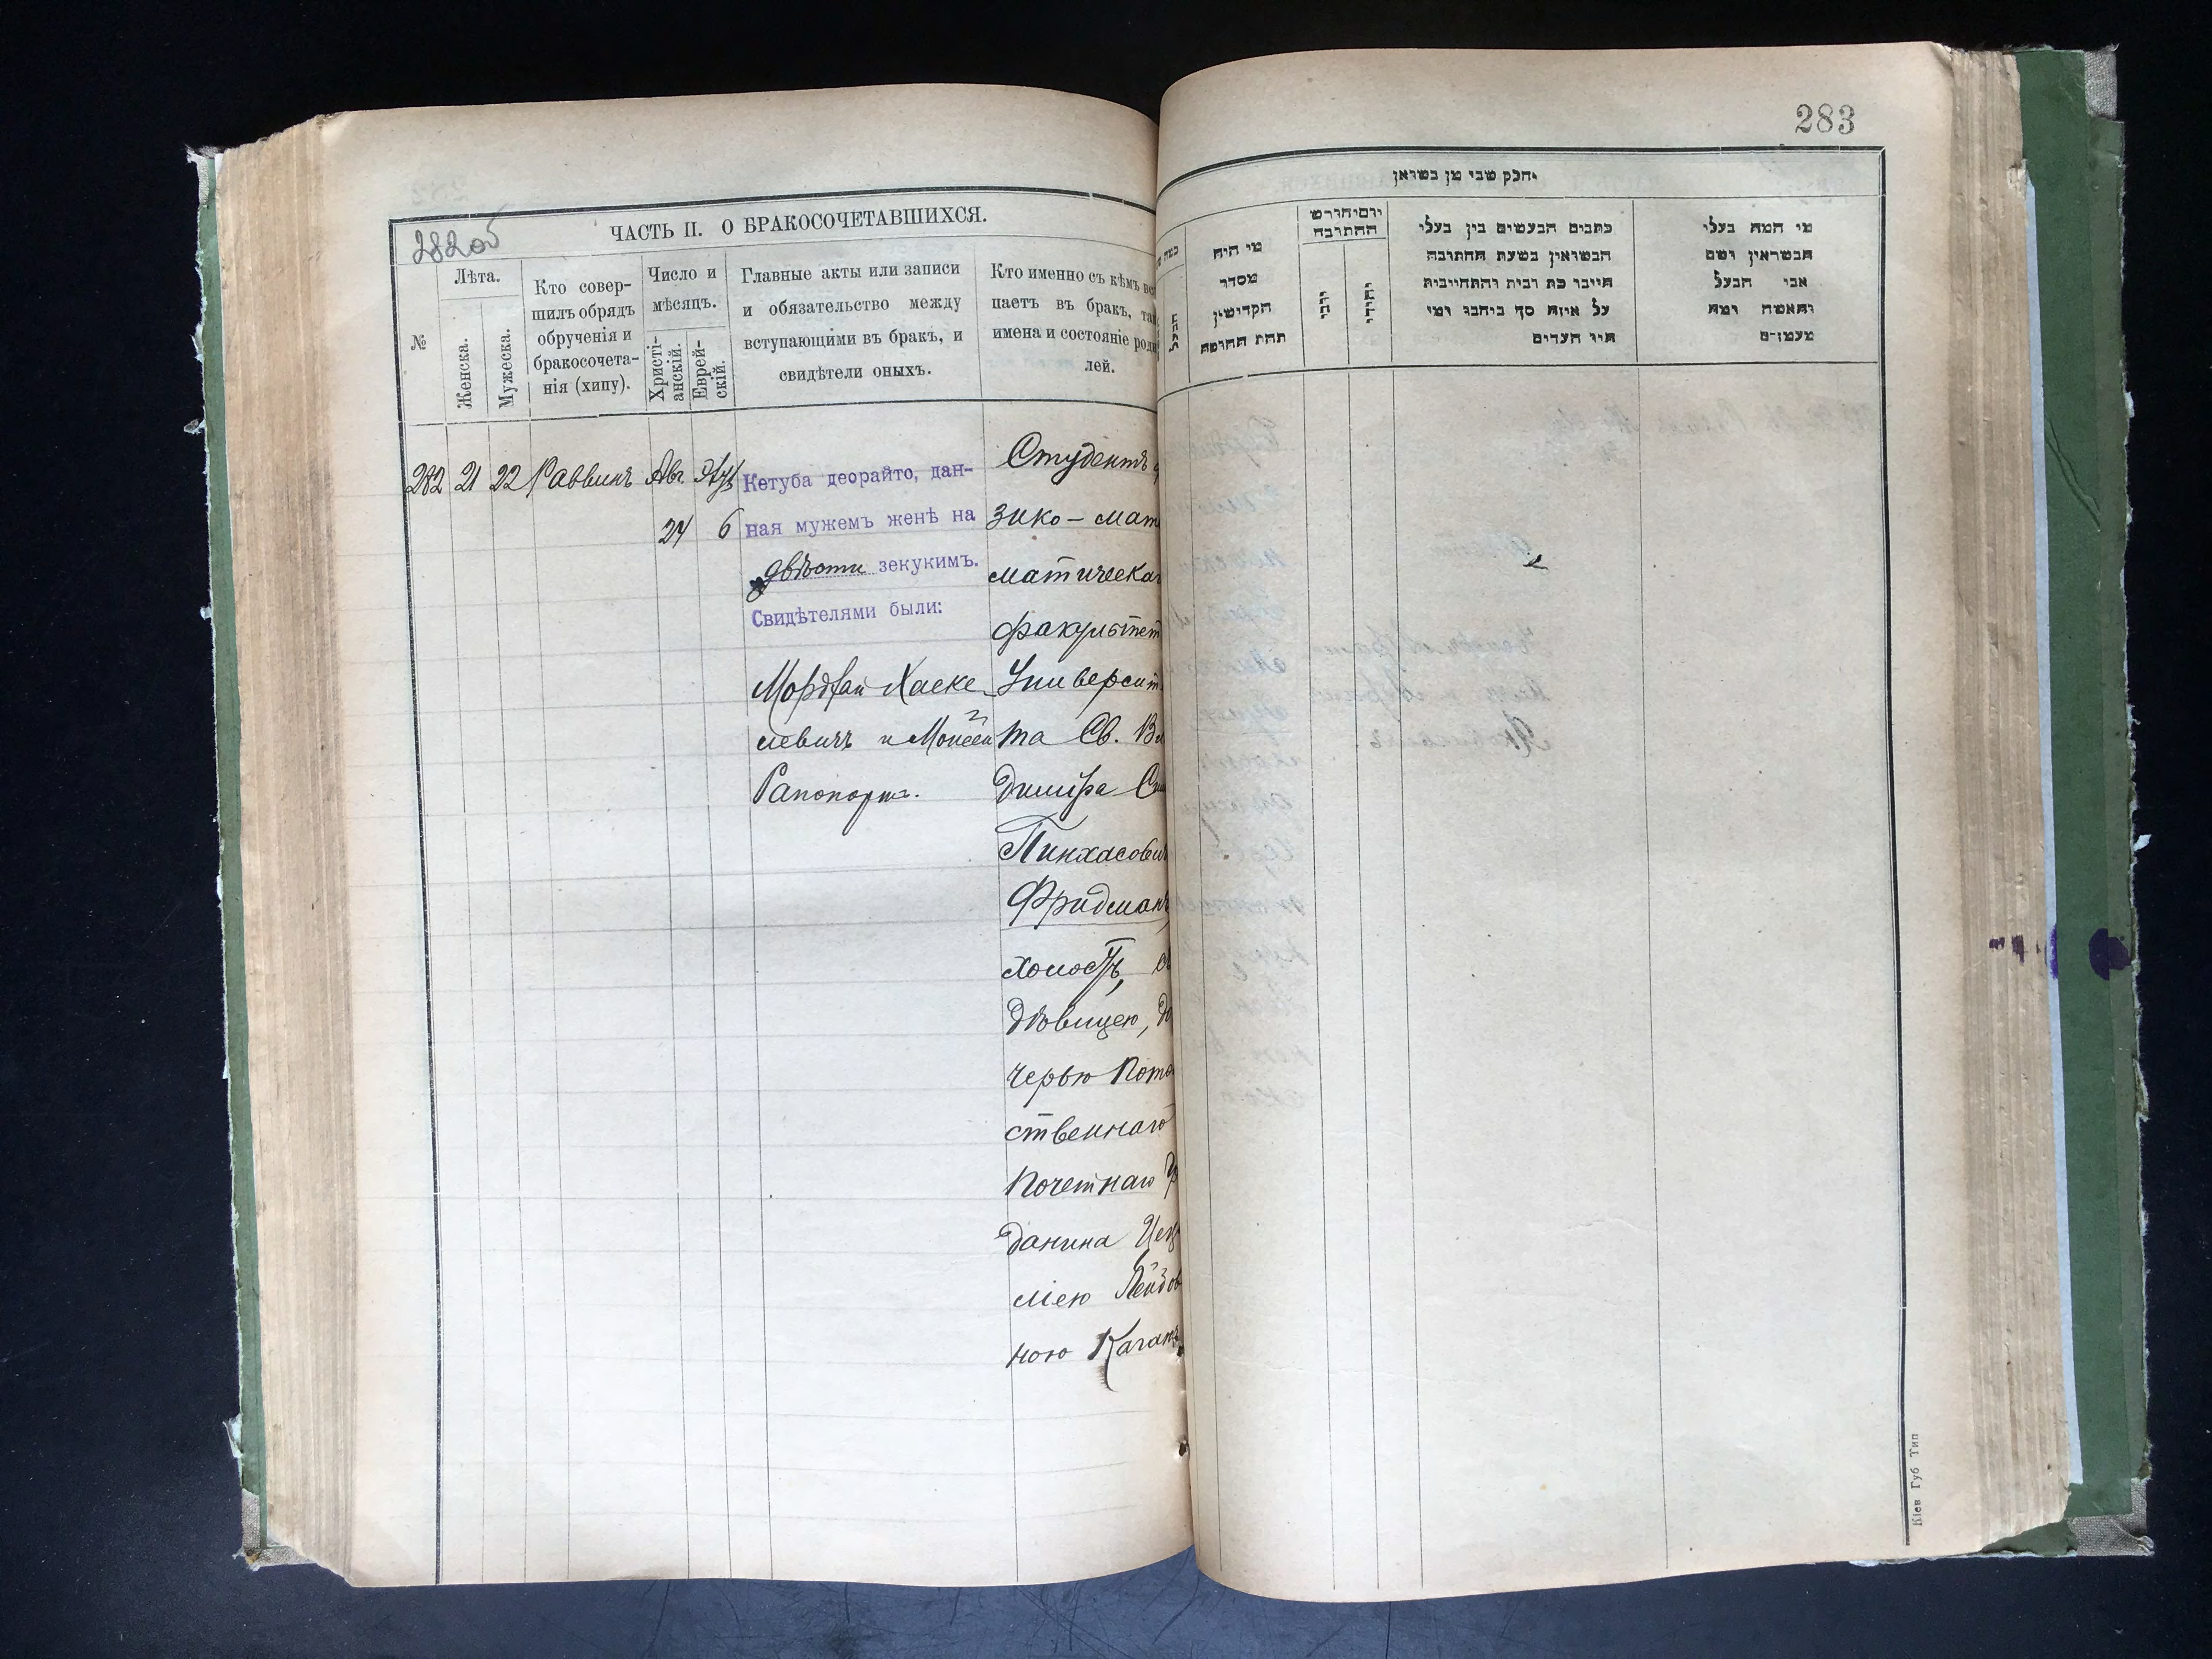 282 об
ЧАСТЬ II. О БРАКОСОЧЕТАВШИХСЯ.
№
Лѣта.
Женска.
Мужеска.
Кто совер-
шилъ обрядъ
обрученія и
бракосочета-
нія (хипу).
Число и
мѣсяцъ.
Христі-
анскій.
Еврей-
скій.
Главные акты или записи
и обязательство между
вступающими въ бракъ, и
свидѣтели оныхъ.
Кто именно съ кѣмъ
паетъ въ бракъ,
имена и состояніе
лей.
282 21 22 Раввинъ Авг.
6
Кетуба деорайто, дан-
ная мужемъ женѣ на
двѣсти зекукимъ.
Свидѣтелями были:
Мордхай Хаске-
левичъ и Моисей
Рапопортъ.
Студентъ
зико-мате
матическаго
факультет
Университе
та Св. Вла
диміра
Пинхасович
Фридманъ,
холостъ, съ
дѣвицею, до
черью Пото
ственнаго
Почетнаго Гр
данина
ліею
ною Каганъ
283
חלק שני מן נשואין
מי היה
מסדר
הקדושין
תחת החופה
יום וחודש
החתונה
יוני
יהודי
כתבים הנעשים בין בעלי
הנשואין בשעת החתונה
היינו כת ובית והתחייבות
על איזה סך ביחבו ומי
היו העדים
מי המה בעלי
הנשואין ושם
אבי הבעל
והאשה ומה
מעמדם
Кіев Губ Тип